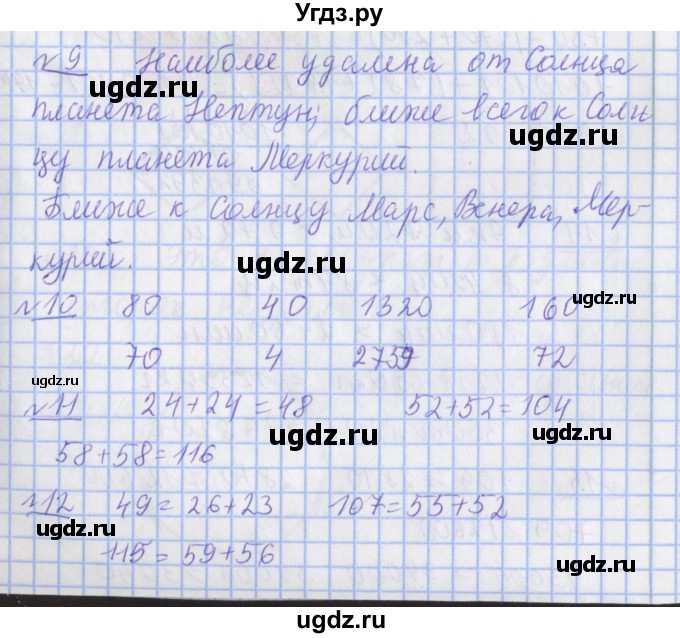 Угдз.ру
№9 Наиболее удалена от Солнца
ugdz.ru
планета Нептун; ближе всего к Солн
ugdz.ru
цу планета Меркурий.
Ближе к Солнцу Марс, Венера, Мер-
ugdz.ru
курий.
№10 80 40 1320 160
ugdz.ru ugdz.ru
70 4 2759 72
ugdz.ru
№11 24+24=48 52+52=104
ugdz.ru ugdz.ru
58+58=116
№12 49=26+23 107=55+52
ugdz.ru
115=59+56
ugdz.ru
Угдз.ру